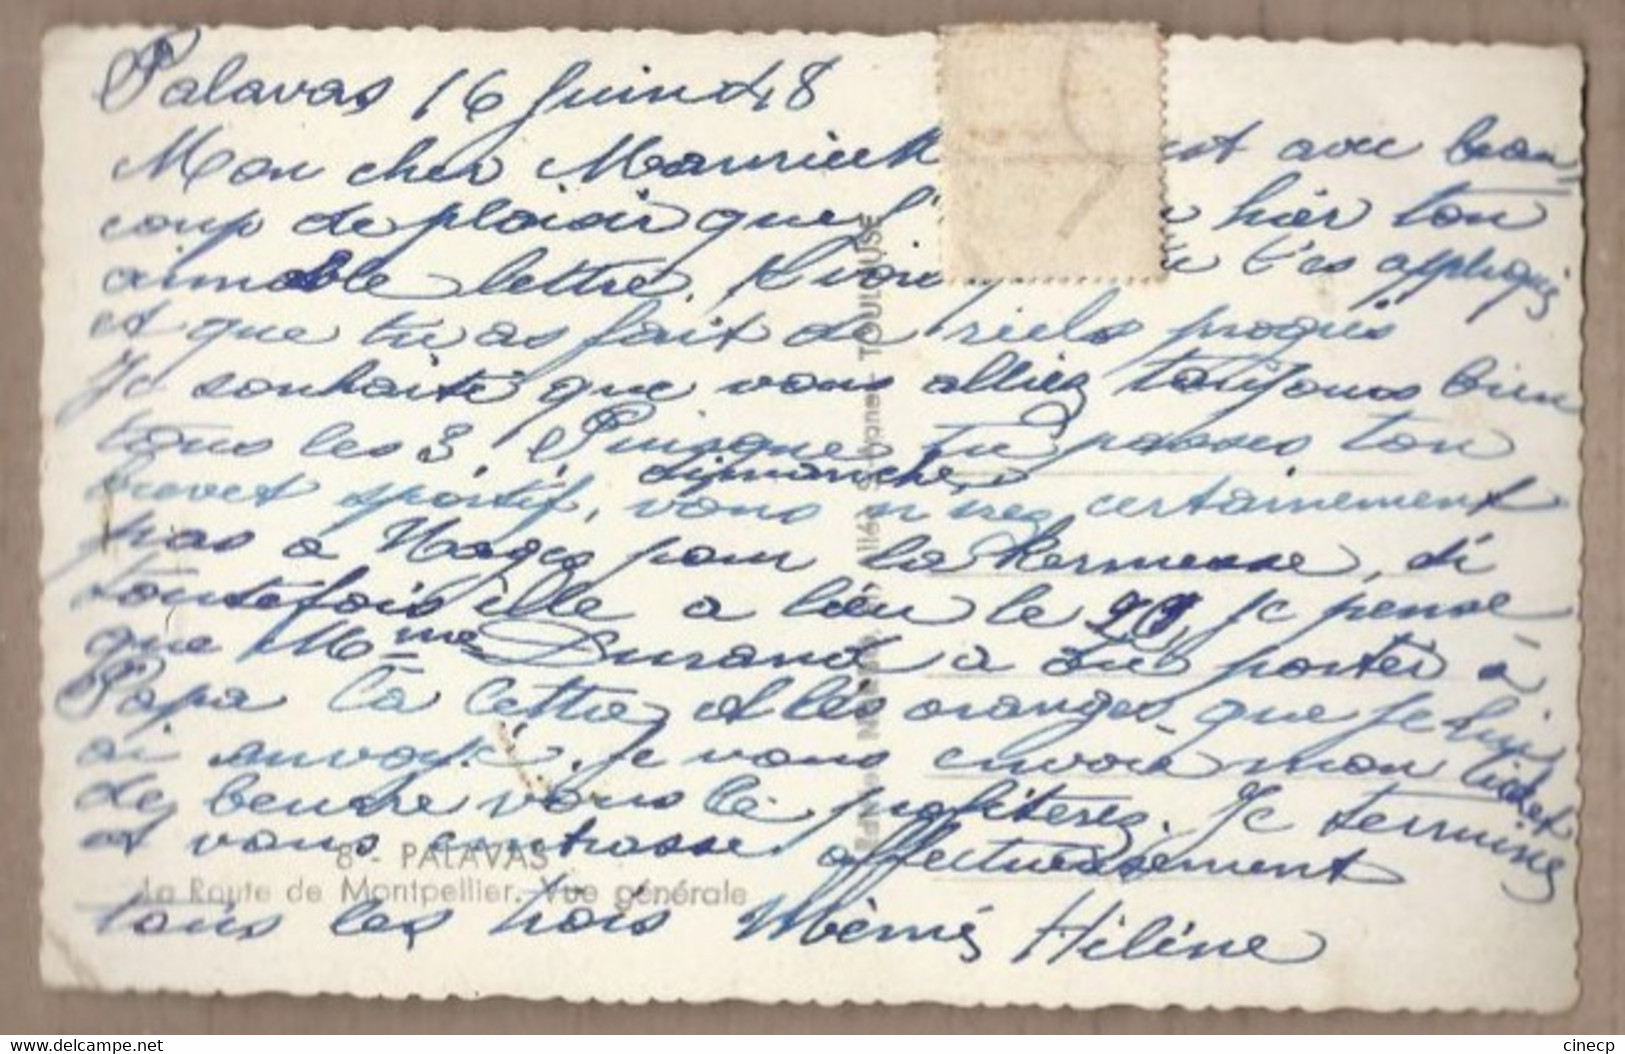 Palavas 16 Juin 48
Mon cher Maurice est avec beau
coup de plaisir que hier ton
aimable lettre. t'es appliqué
et que tu as fait de réels progrès
Je souhaite que vous alliez toujours bien
tous les 3. Puisque tu passes ton
dimanche
brevet sportif, vous n'irez certainement
pas à Nages pour la Kermesse, si
toutefois elle a lieu le 20. Je pense
que Mme Durand a dû porter à
Papa la lettre et les oranges que je lui
ai envoyé. Je vous envoie mon ticket
de beurre vous le profiterez. Je termine
et vous embrasse affectueusement
tous les trois Mémé Hélène
8 - PALAVAS
La Route de Montpellier. Vue générale
TOULOUSE
cinecp